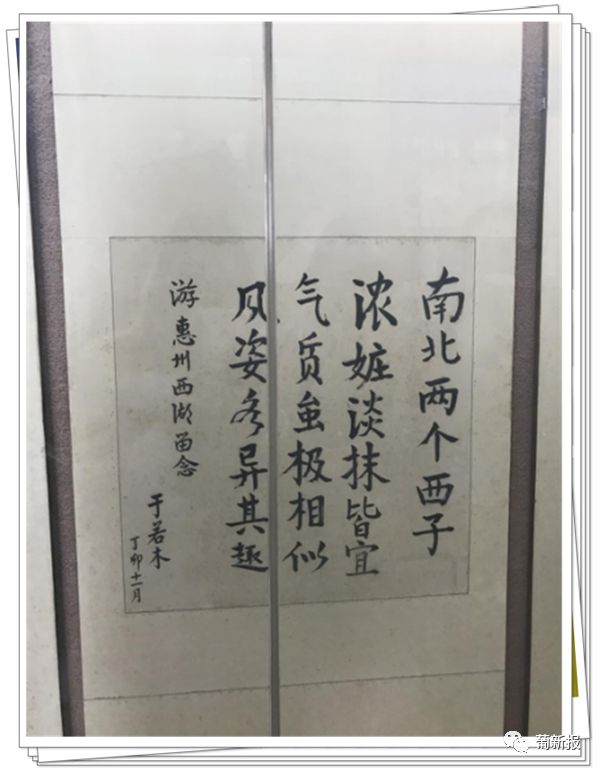 南北两个西子
浓妝淡抹皆宜
气质虽极相似
风姿各异其趣
游惠州西湖留念
于若木
丁卯十一月
葡新报